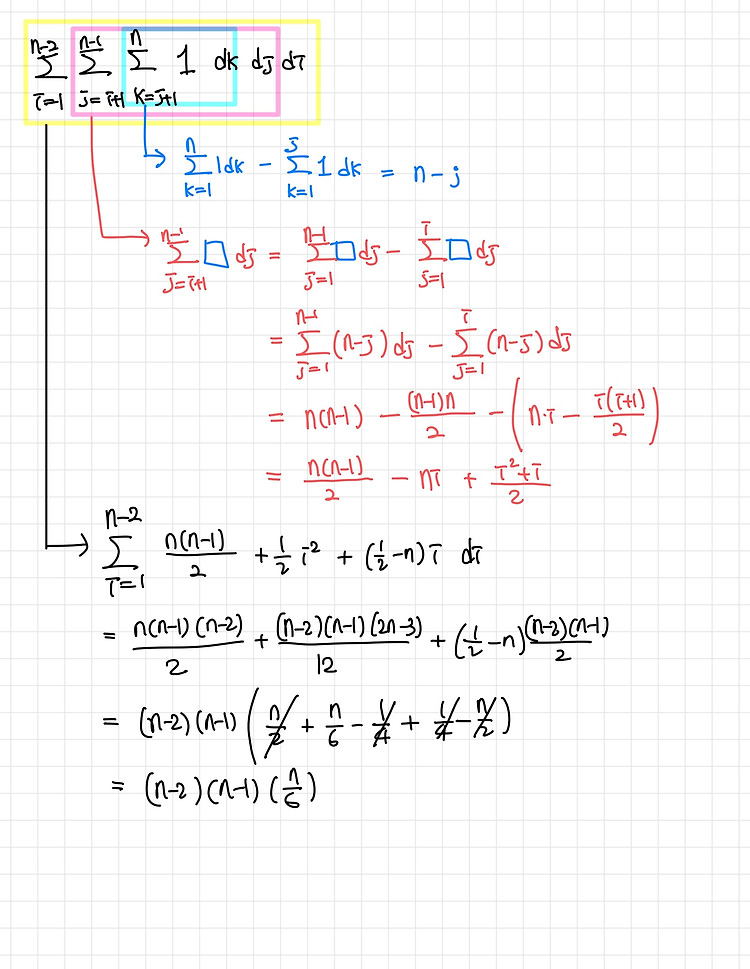 ∑_{i=1}^{n-2} ∑_{j=i+1}^{n-1} ∑_{k=j+1}^{n} 1 dk dj di
∑_{k=1}^{n} 1dk - ∑_{k=1}^{j} 1 dk = n - j
∑_{j=i+1}^{n-1} □ dj = ∑_{j=1}^{n-1} □ dj - ∑_{j=1}^{i} □ dj
= ∑_{j=1}^{n-1} (n-j) dj - ∑_{j=1}^{i} (n-j) dj
= n(n-1) - (n-1)n/2 - (n·i - i(i+1)/2)
= n(n-1)/2 - ni + (i²+i)/2
∑_{i=1}^{n-2} n(n-1)/2 + 1/2 i² + (1/2 - n) i di
= n(n-1)(n-2)/2 + (n-2)(n-1)(2n-3)/12 + (1/2 - n) (n-2)(n-1)/2
= (n-2)(n-1) (n/2 + n/6 - 1/4 + 1/4 - n/2)
= (n-2)(n-1) (n/6)